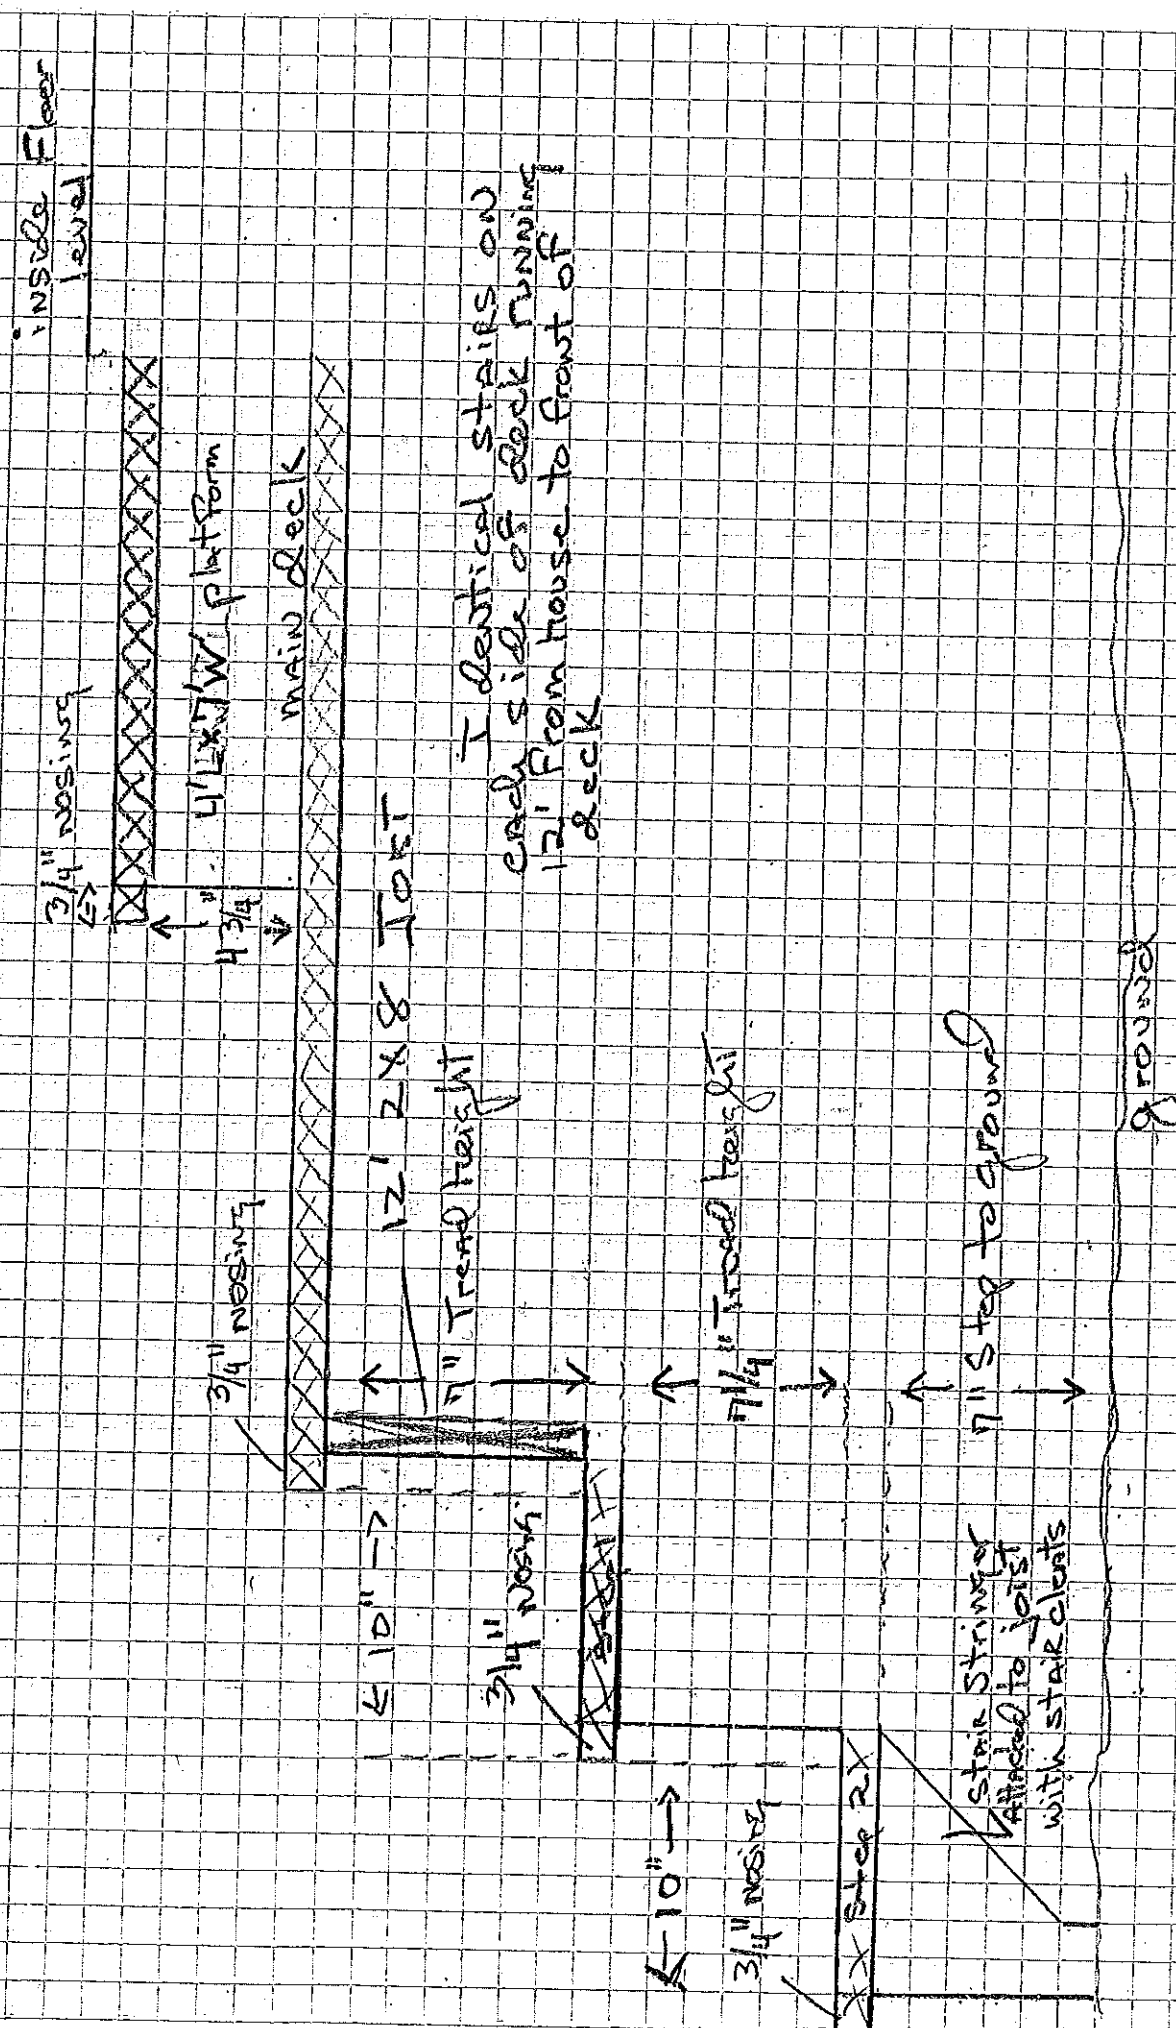 inside Floor
level
3/4" Nosing
4'L x 7'W platform
4 3/4"
main deck
3/4" Nosing
12' 2x8 JOIST
Identical stairs on
each side of deck running
12' from house to front of
deck
7" Tread height
← 10" →
3/4" Nosing
7 1/4" Tread height
← 10" →
3/4" Nosing
Step 2
7" Step to ground
Stair Stringer
Attached to joist
with stair cleats
ground